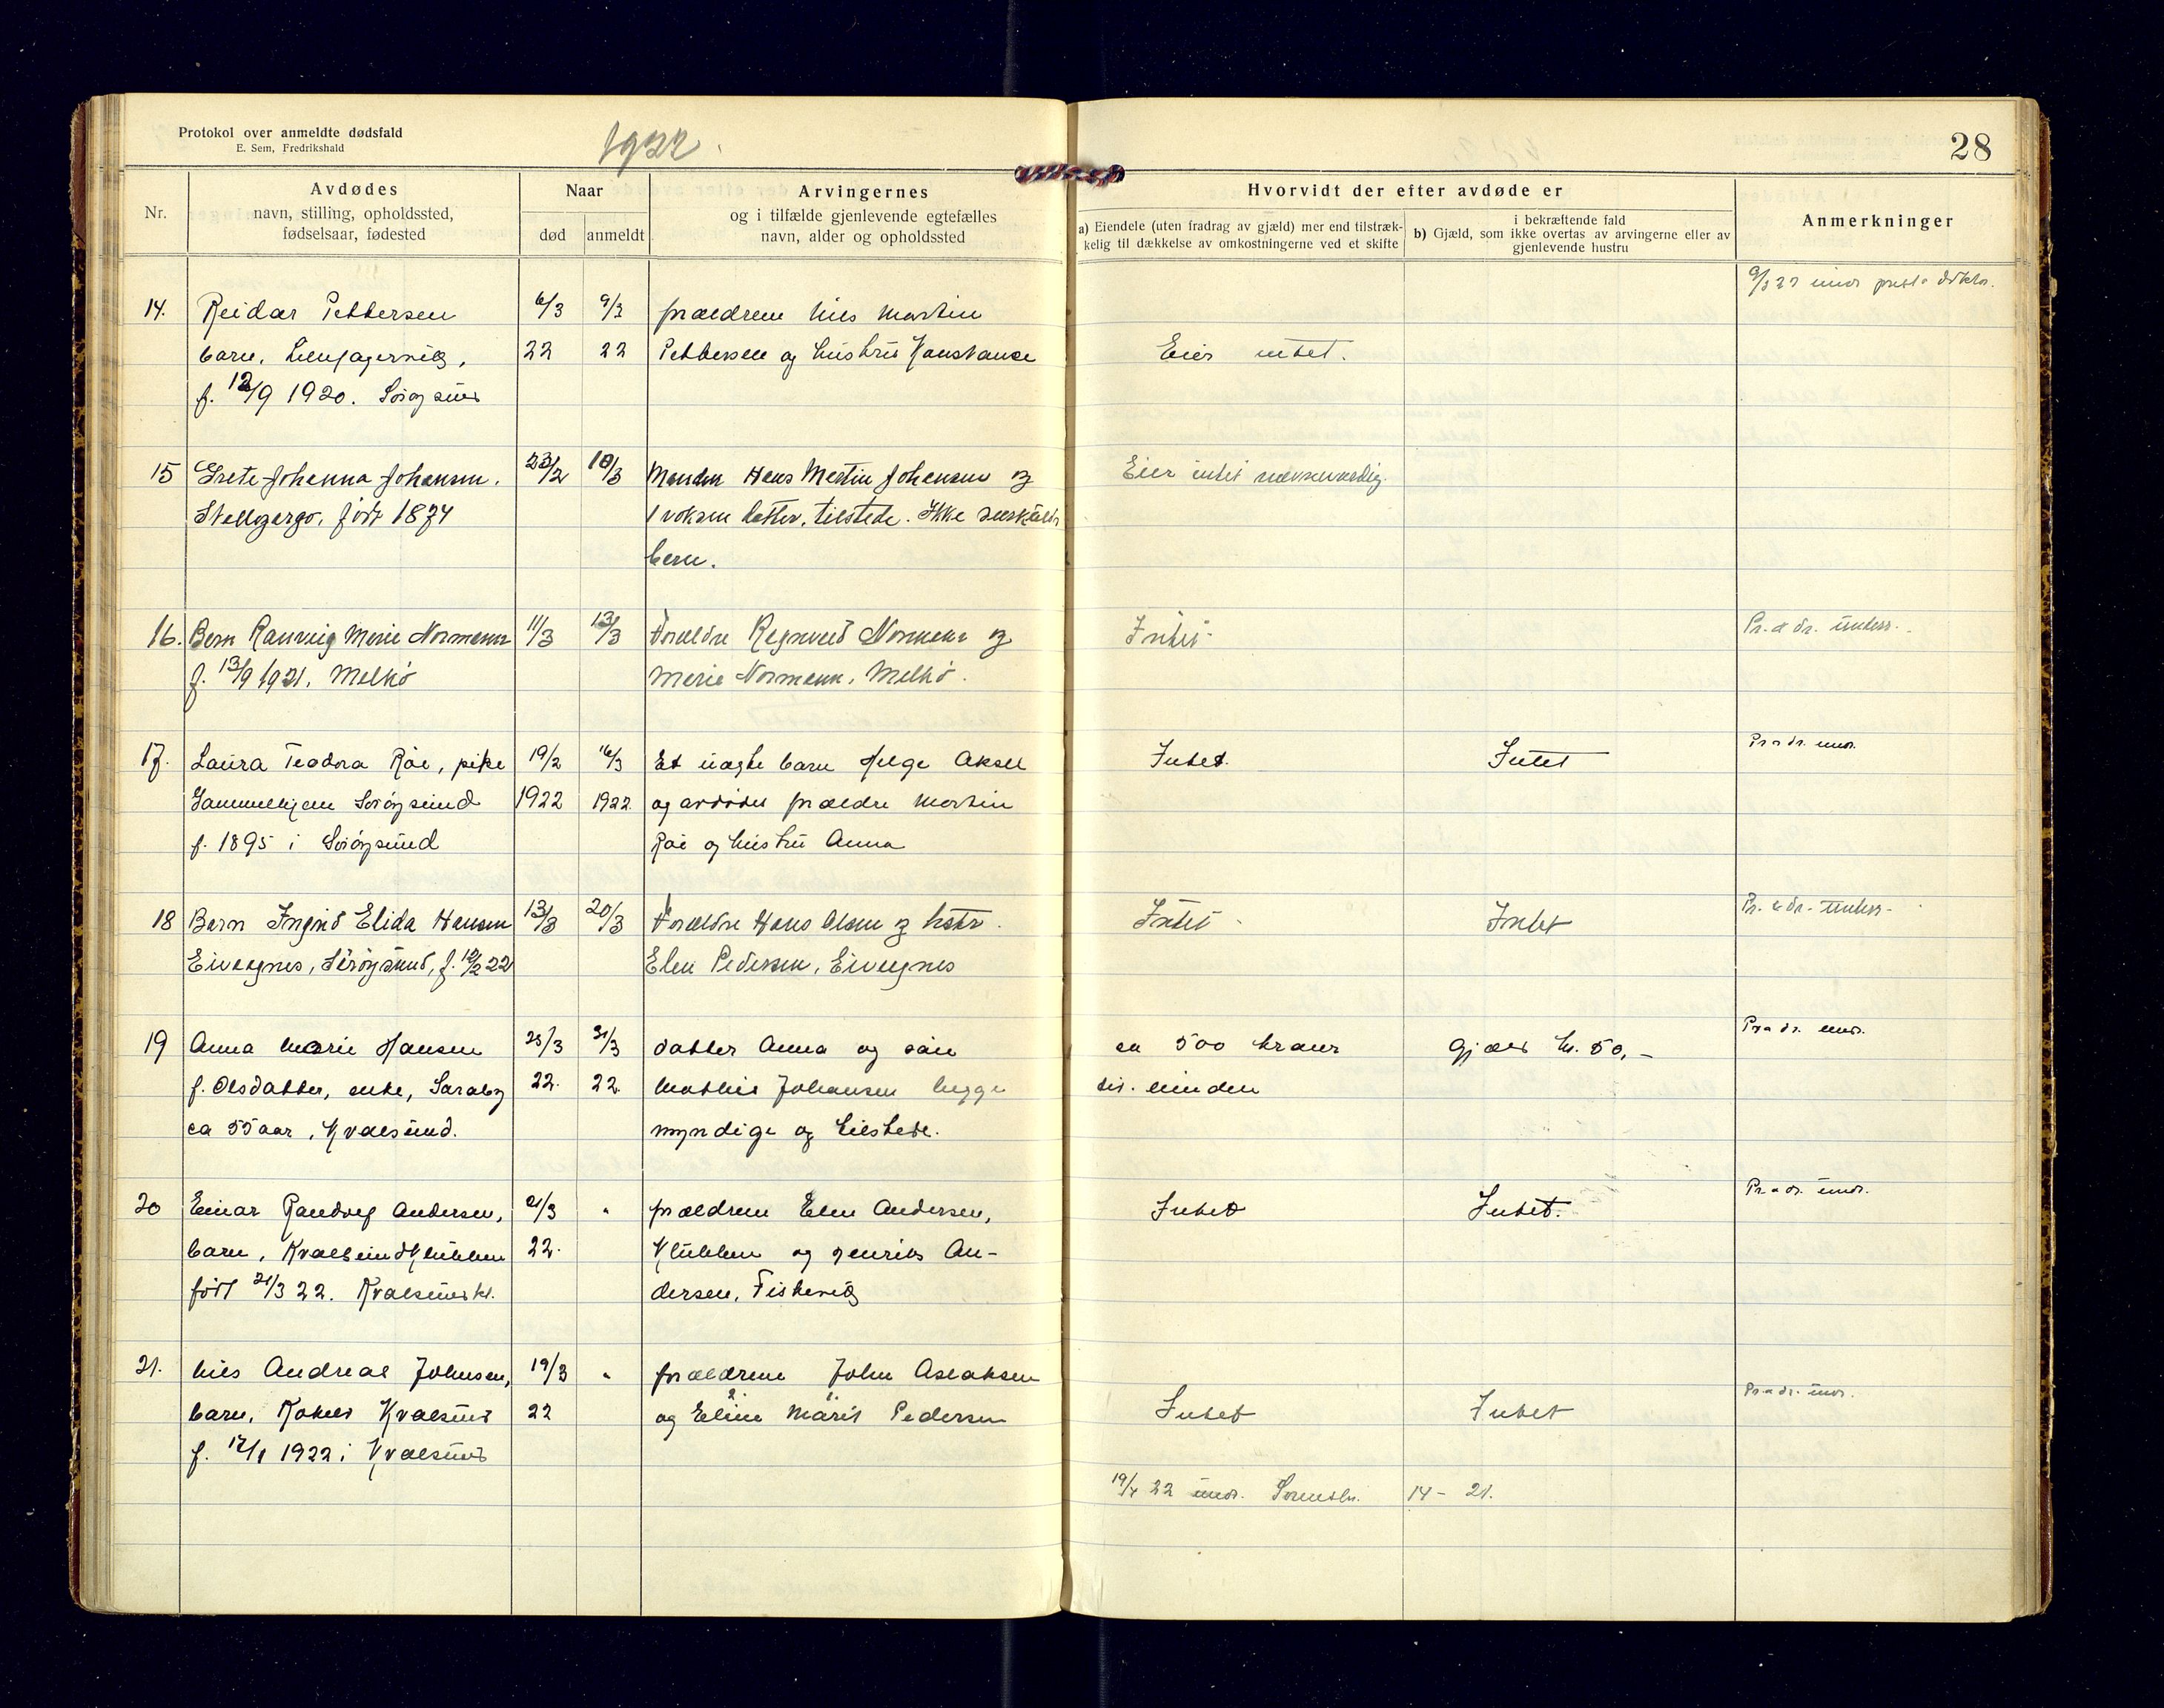 Protokol over anmeldte dødsfald
E. Sem, Fredrikshald
1922.
28
Nr.
Avdødes
navn, stilling, opholdssted,
fødselsaar, fødested
Naar
død
anmeldt
Arvingernes
og i tilfælde gjenlevende egtefælles
navn, alder og opholdssted
Hvorvidt der efter avdøde er
a) Eiendele (uten fradrag av gjæld) mer end tilstræk-
kelig til dækkelse av omkostningerne ved et skifte
i bekræftende fald
b) Gjæld, som ikke overtas av arvingerne eller av
gjenlevende hustru
Anmerkninger
14. Reidar Pettersen 6/3 9/3 forældrene Nils Martin 9/3 22
barn, 22 22 Pettersen og hustru Konstanse Eier intet.
f. 12/9 1920.
15 Grete Johanna Johansen. 23/2 10/3 Manden Hans Martin Johansen og Eier intet
født 1874 1 voksen datter, tilstede. Ikke
barn.
16. Barn Ranveig Marie Normann 11/3 13/3 Forældre Ragnvald Normann og Intet Pr. & dr. underr.
f. 13/9 1921. Melkø Marie Normann, Melkø.
17. Laura Teodora Roe, pike 19/2 16/3 Et uægte barn Helge Aksel Intet. Intet Pr & dr. undr.
Sørøysund 1922 1922. og avdødes forældre Martin
f. 1895 i Sørøysund og hustru Anna
18 Barn Ingrid Elida Hansen 13/3 20/3 Forældre Hans Olsen og hstr. Intet Intet Pr. & dr. underr.
Sørøysund, f. 12/2 22 Elen Pedersen,
19 Anna Marie Hansen 25/3 31/3 datter Anna og søn ca 500 kroner gjæld kr. 50,- Pr & dr. undr.
f. Olsdatter, enke, Saraby 22. 22. Mathis Johansen begge
ca 55 aar, Kvalsund. myndige og tilstede.
20 Einar Randolf Andersen, 21/3 " forældrene Elen Andersen, Intet Intet. Pr & dr. undr.
barn, Kvalsund Klubben 22. Klubben og Henrik An-
født 21/3 22. Kvalsund kl. dersen, Fiskevåg
21. Nils Andreas Johnsen, 19/3 " forældrene John Aslaksen Pr & dr. undr.
barn, Kvalsund 22 og Eline Marit Pedersen Intet Intet
f. 17/1 1922 i Kvalsund
19/4 22 undr. 14 - 21.